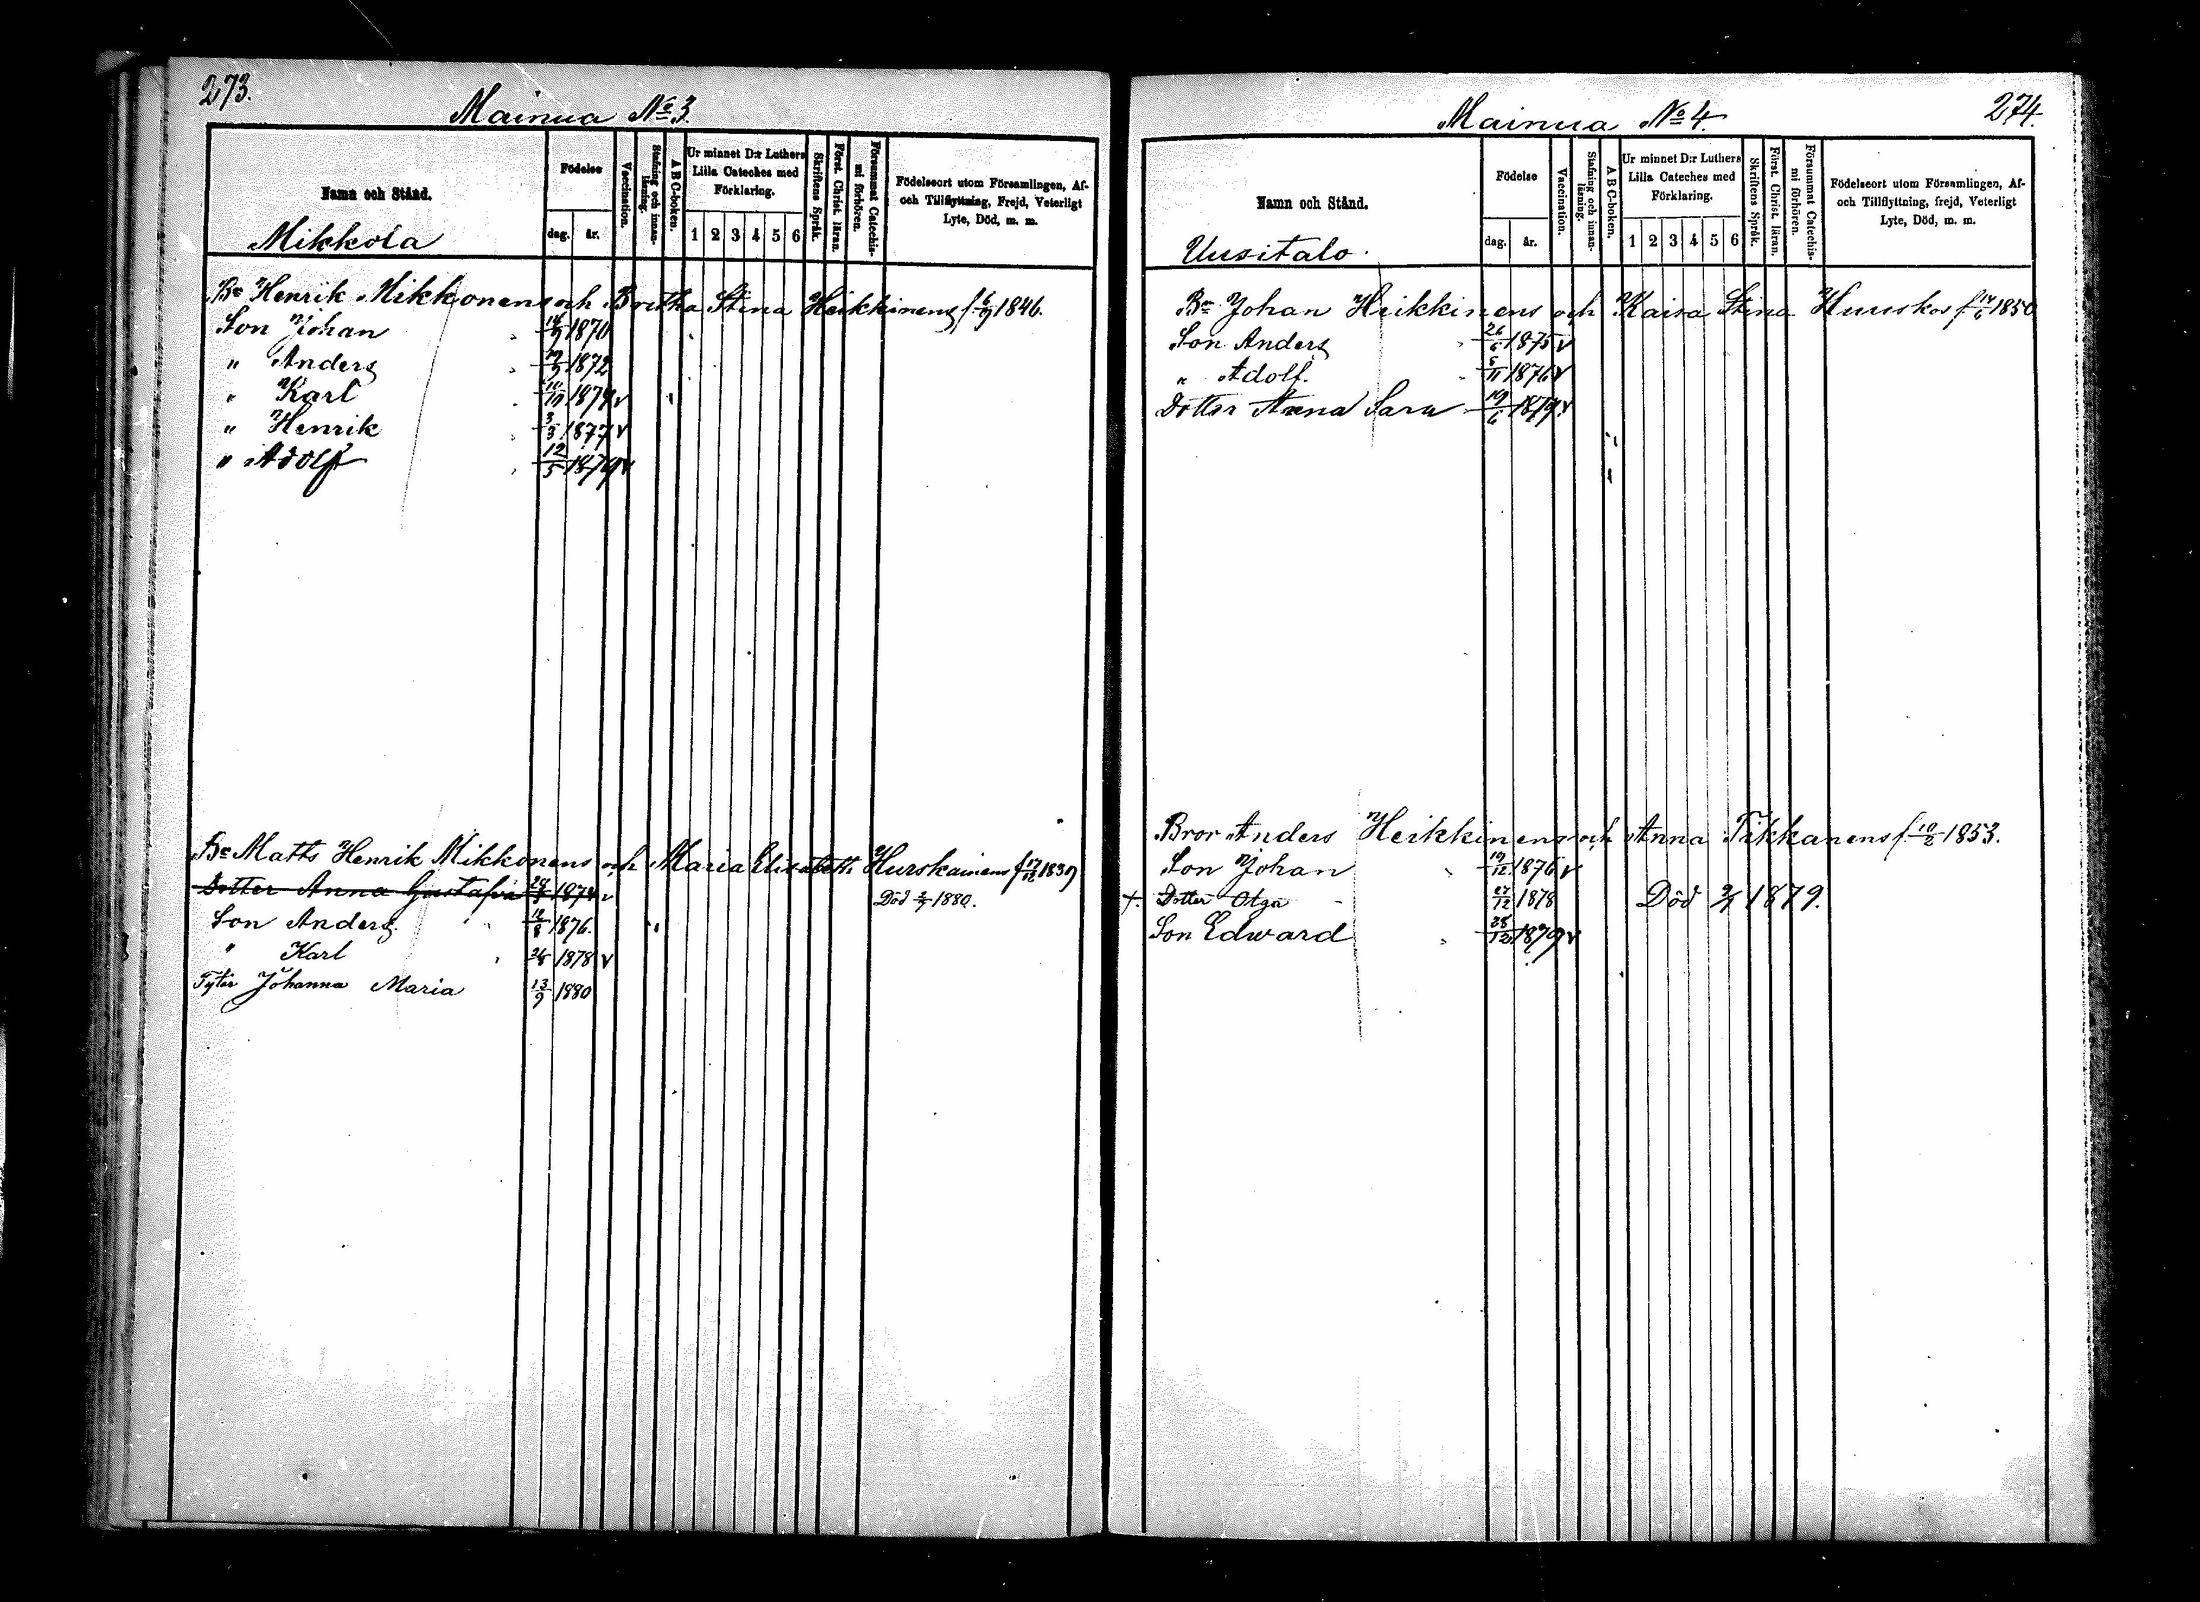 273.
Mainua No 3.
Namn och Stånd.
Födelse
dag. år.
Vaccination.
Stafning och innan-
läsning.
A B C-boken.
Ur minnet D:r Luthers
Lilla Cateches med
Förklaring.
1 2 3 4 5 6
Skriftens Språk.
Först. Christ. läran.
Försummat Catechis-
mi förhören.
Födelseort utom Församlingen, Af-
och Tillflyttning, Frejd, Veterligt
Lyte, Död, m. m.
Mikkola
Bn Henrik Mikkonens och Britha Stina Heikkinens f 6/9 1846.
Son Johan 1870
" Anders 1872
" Karl 1874 v
" Henrik 3/3 1877 v
" Adolf 12/5 1879 v
Bn Matts Henrik Mikkonens och Maria Elisabeth Hurskainens f 17/12 1839
Dotter Anna Gustafva 1874 v Död 2/7 1880.
Son Anders 12/8 1876.
" Karl 1878 v
Tytär Johanna Maria 13/9 1880
274.
Mainua No 4.
Namn och Stånd.
Födelse
dag. år.
Vaccination.
Stafning och innan-
läsning.
A B C-boken.
Ur minnet D:r Luthers
Lilla Cateches med
Förklaring.
1 2 3 4 5 6
Skriftens Språk.
Först. Christ. läran.
Försummat Catechis-
mi förhören.
Födelseort utom Församlingen, Af-
och Tillflyttning, frejd, Veterligt
Lyte, Död, m. m.
Uusitalo.
Bn Johan Heikkinens och Kaisa Stina Huuskos f 14/6 1850
Son Anders 26/5 1875 v
" Adolf. 5/11 1876 v
Dotter Anna Sara 19/6 1879 v
Bror Anders Heikkinens och Anna Tikkanens f 10/2 1853.
Son Johan 19/12 1876 v
+. Dotter Olga 27/12 1878 Död 1879.
Son Edward 28/12 1879 v